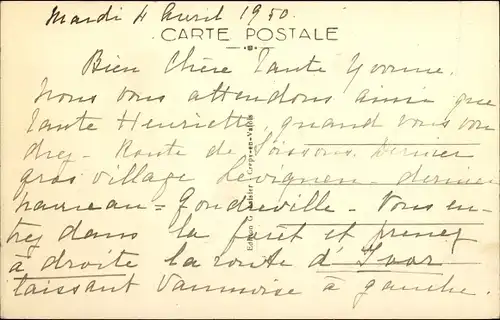 Mardi 4 Avril 1950.
CARTE POSTALE
Bien Chère Tante Yvonne.
Nous vous attendons ainsi que
Tante Henriette, quand vous vou
drez - Route de Soissons. Dernier
gros village Levignen - dernier
hameau = Gondreville - Vous en-
trez dans la forêt et prenez
à droite la route d'Ivor
laissant Vaumoise à gauche.
Edition Crépy-en-Valois